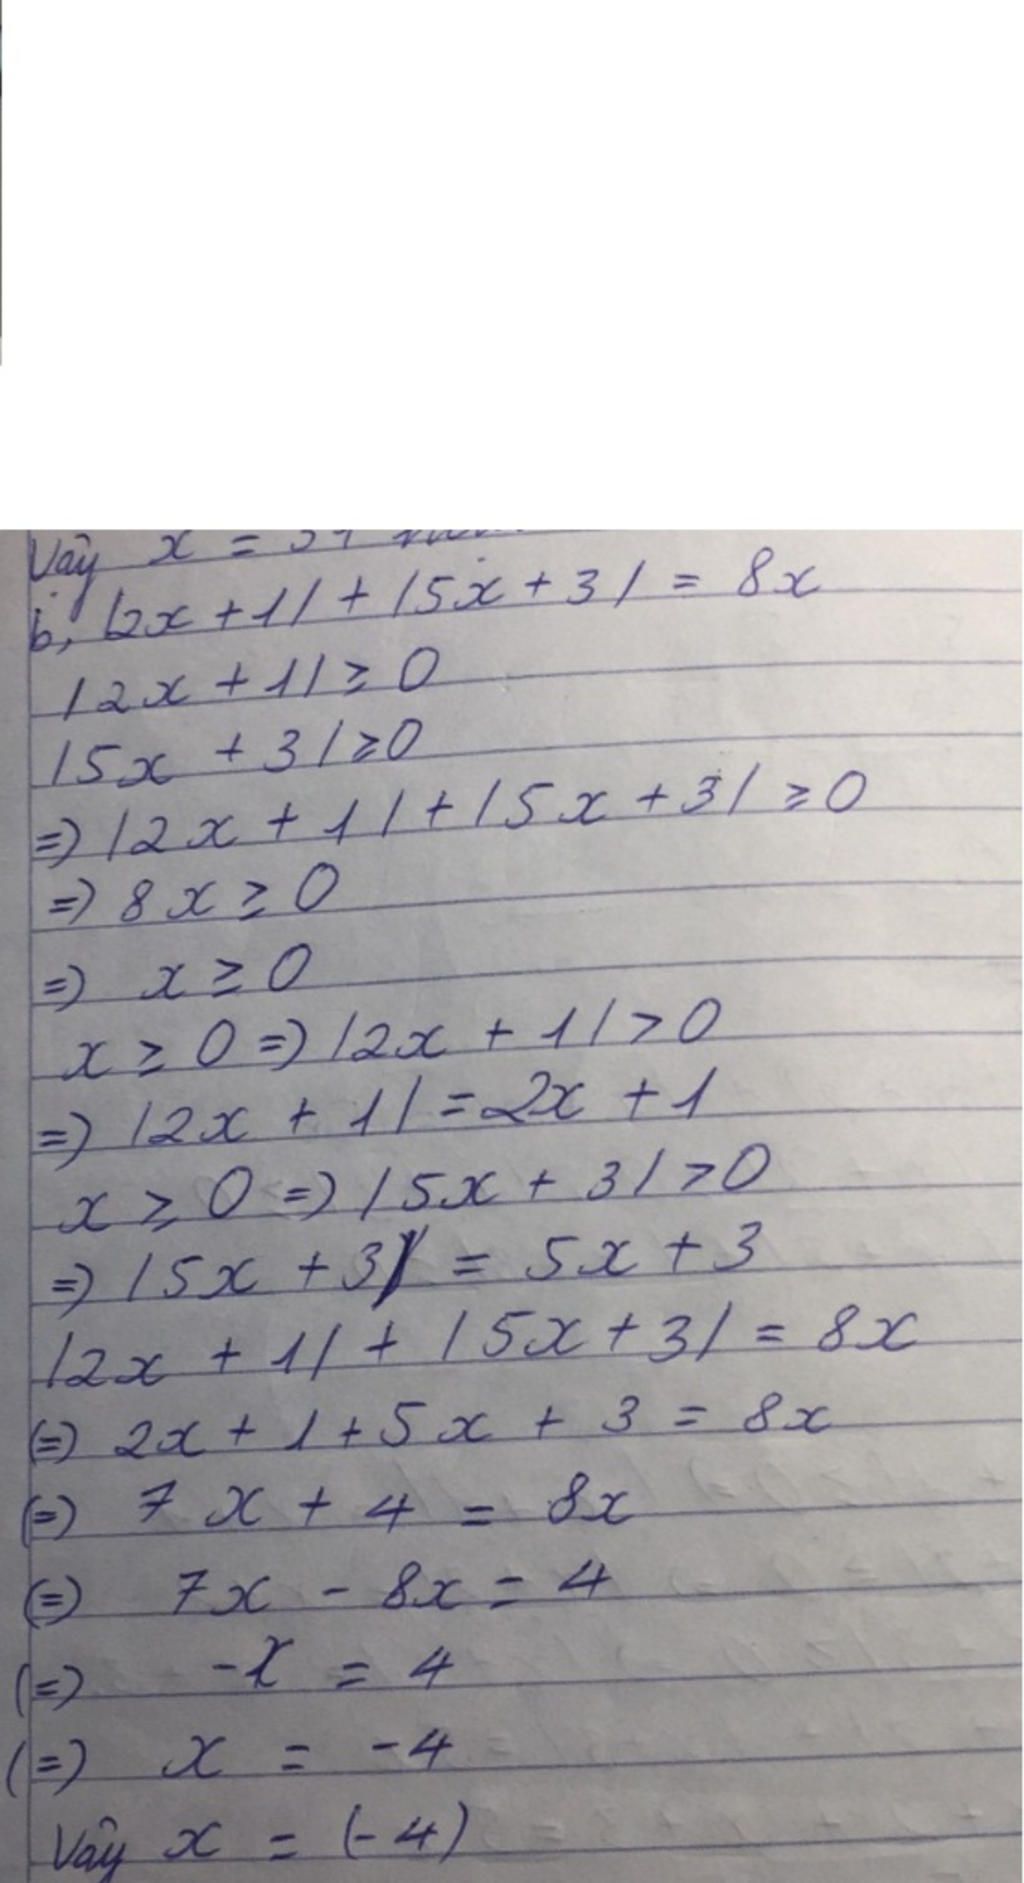 Vậy x =
b, |2x + 1| + |5x + 3| = 8x
|2x + 1| ≥ 0
|5x + 3| ≥ 0
=> |2x + 1| + |5x + 3| ≥ 0
=> 8x ≥ 0
=> x ≥ 0
x ≥ 0 => |2x + 1| > 0
=> |2x + 1| = 2x + 1
x ≥ 0 => |5x + 3| > 0
=> |5x + 3| = 5x + 3
|2x + 1| + |5x + 3| = 8x
(=) 2x + 1 + 5x + 3 = 8x
(=) 7x + 4 = 8x
(=) 7x - 8x = 4
(=) -x = 4
(=) x = -4
Vậy x = (-4)